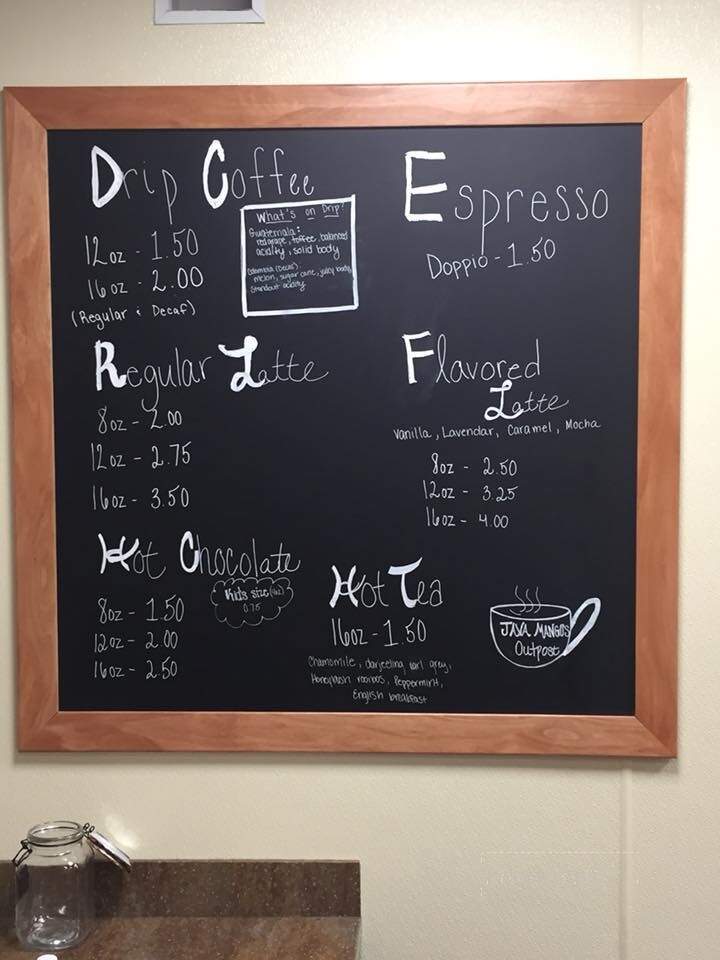 Drip Coffee
12oz - 1.50
16oz - 2.00
(Regular & Decaf)
What's on Drip?
Guatemala:
red grape, toffee, balanced
acidity, solid body
Colombia (Decaf)
melon, sugar cane, juicy body,
standout acidity
Espresso
Doppio - 1.50
Regular Latte
8oz - 2.00
12oz - 2.75
16oz - 3.50
Flavored
Latte
Vanilla, Lavendar, Caramel, Mocha
8oz - 2.50
12oz - 3.25
16oz - 4.00
Hot Chocolate
Kids size (4oz)
0.75
8oz - 1.50
12oz - 2.00
16oz - 2.50
Hot Tea
16oz - 1.50
Chamomile, darjeeling, earl grey,
Honeybush rooibos, Peppermint,
English breakfast
JAVA MANGOS
Outpost